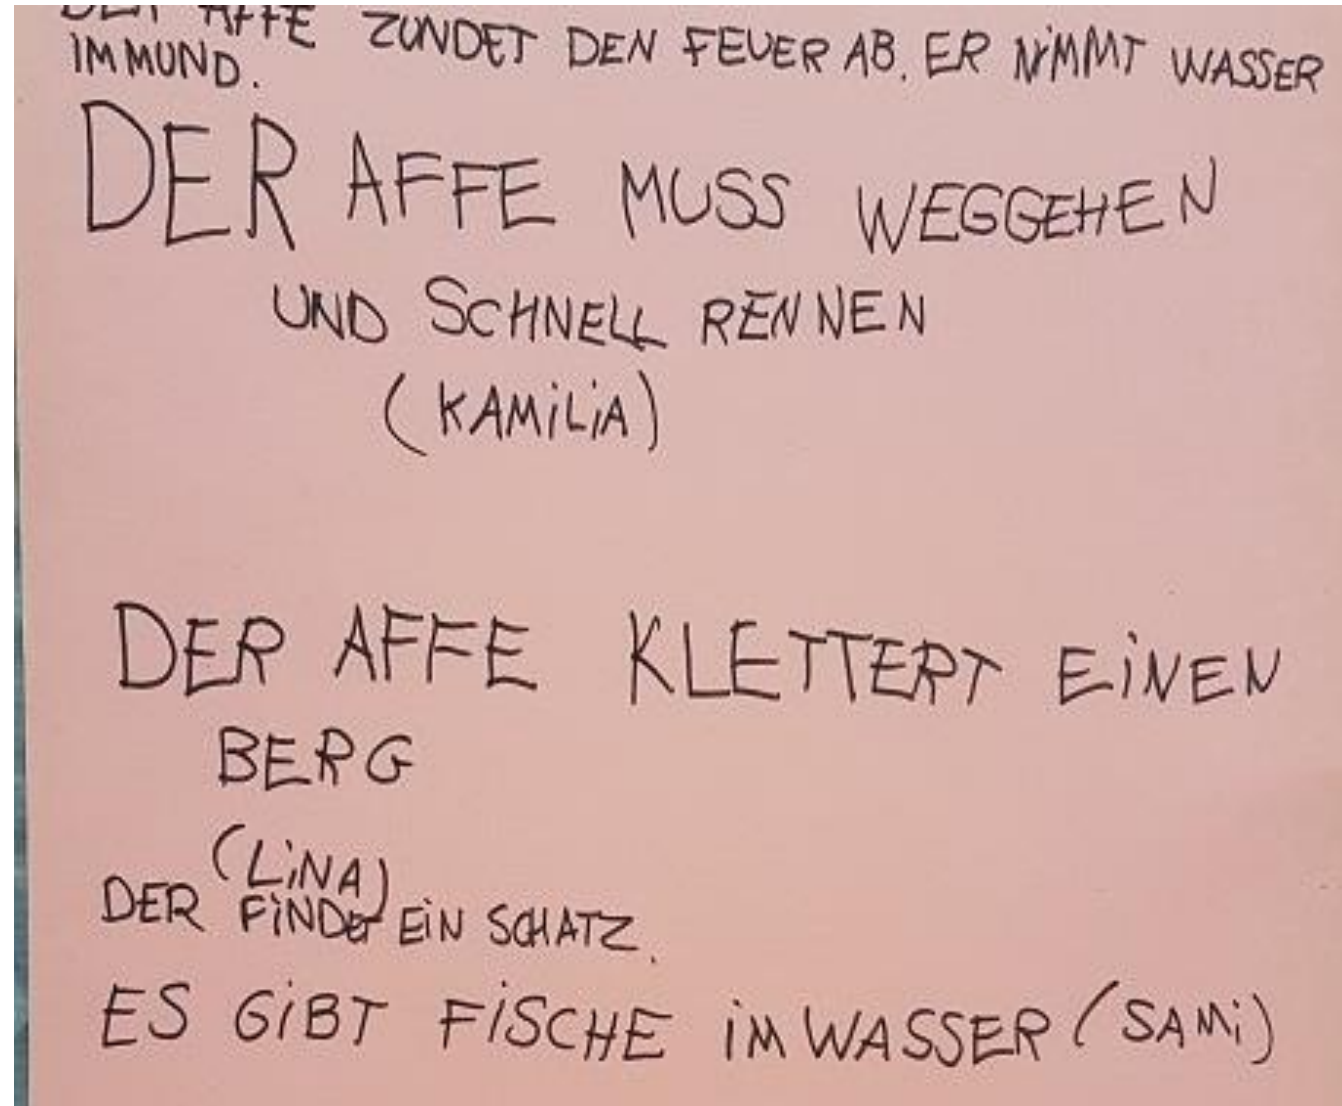 DER AFFE ZÜNDET DEN FEUER AB. ER NiMMT WASSER
IM MUND.
DER AFFE MUSS WEGGEHEN
UND SCHNELL RENNEN
(KAMiLiA)
DER AFFE KLETTERT EiNEN
BERG
(LiNA)
DER FiNDet EiN SCHATZ.
ES GiBT FiSCHE iM WASSER (SAMi)